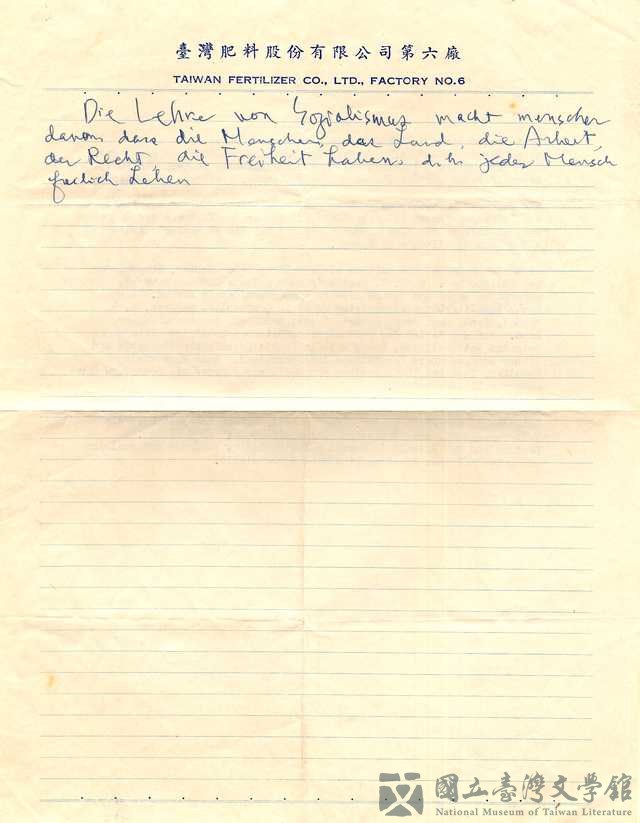 臺灣肥料股份有限公司第六廠
TAIWAN FERTILIZER CO., LTD., FACTORY NO.6
Die Lehre von Sozialismus macht menschen
davon dass die Menschen, das Land, die Arbeit,
der Recht, die Freiheit haben. d.h. jeder Mensch
Leben
國立臺灣文學館
National Museum of Taiwan Literature